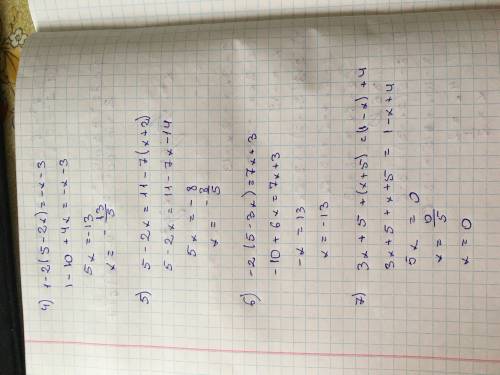 4) 1-2(5-2x)=-x-3
1-10+4x=-x-3
5x=-13
x=-13/5
5) 5-2x=11-7(x+2)
5-2x=11-7x-14
5x=-8
x=-8/5
6) -2(5-3x)=7x+3
-10+6x=7x+3
-x=13
x=-13
7) 3x+5+(x+5)=(1-x)+4
3x+5+x+5=1-x+4
5x=0
x=0/5
x=0